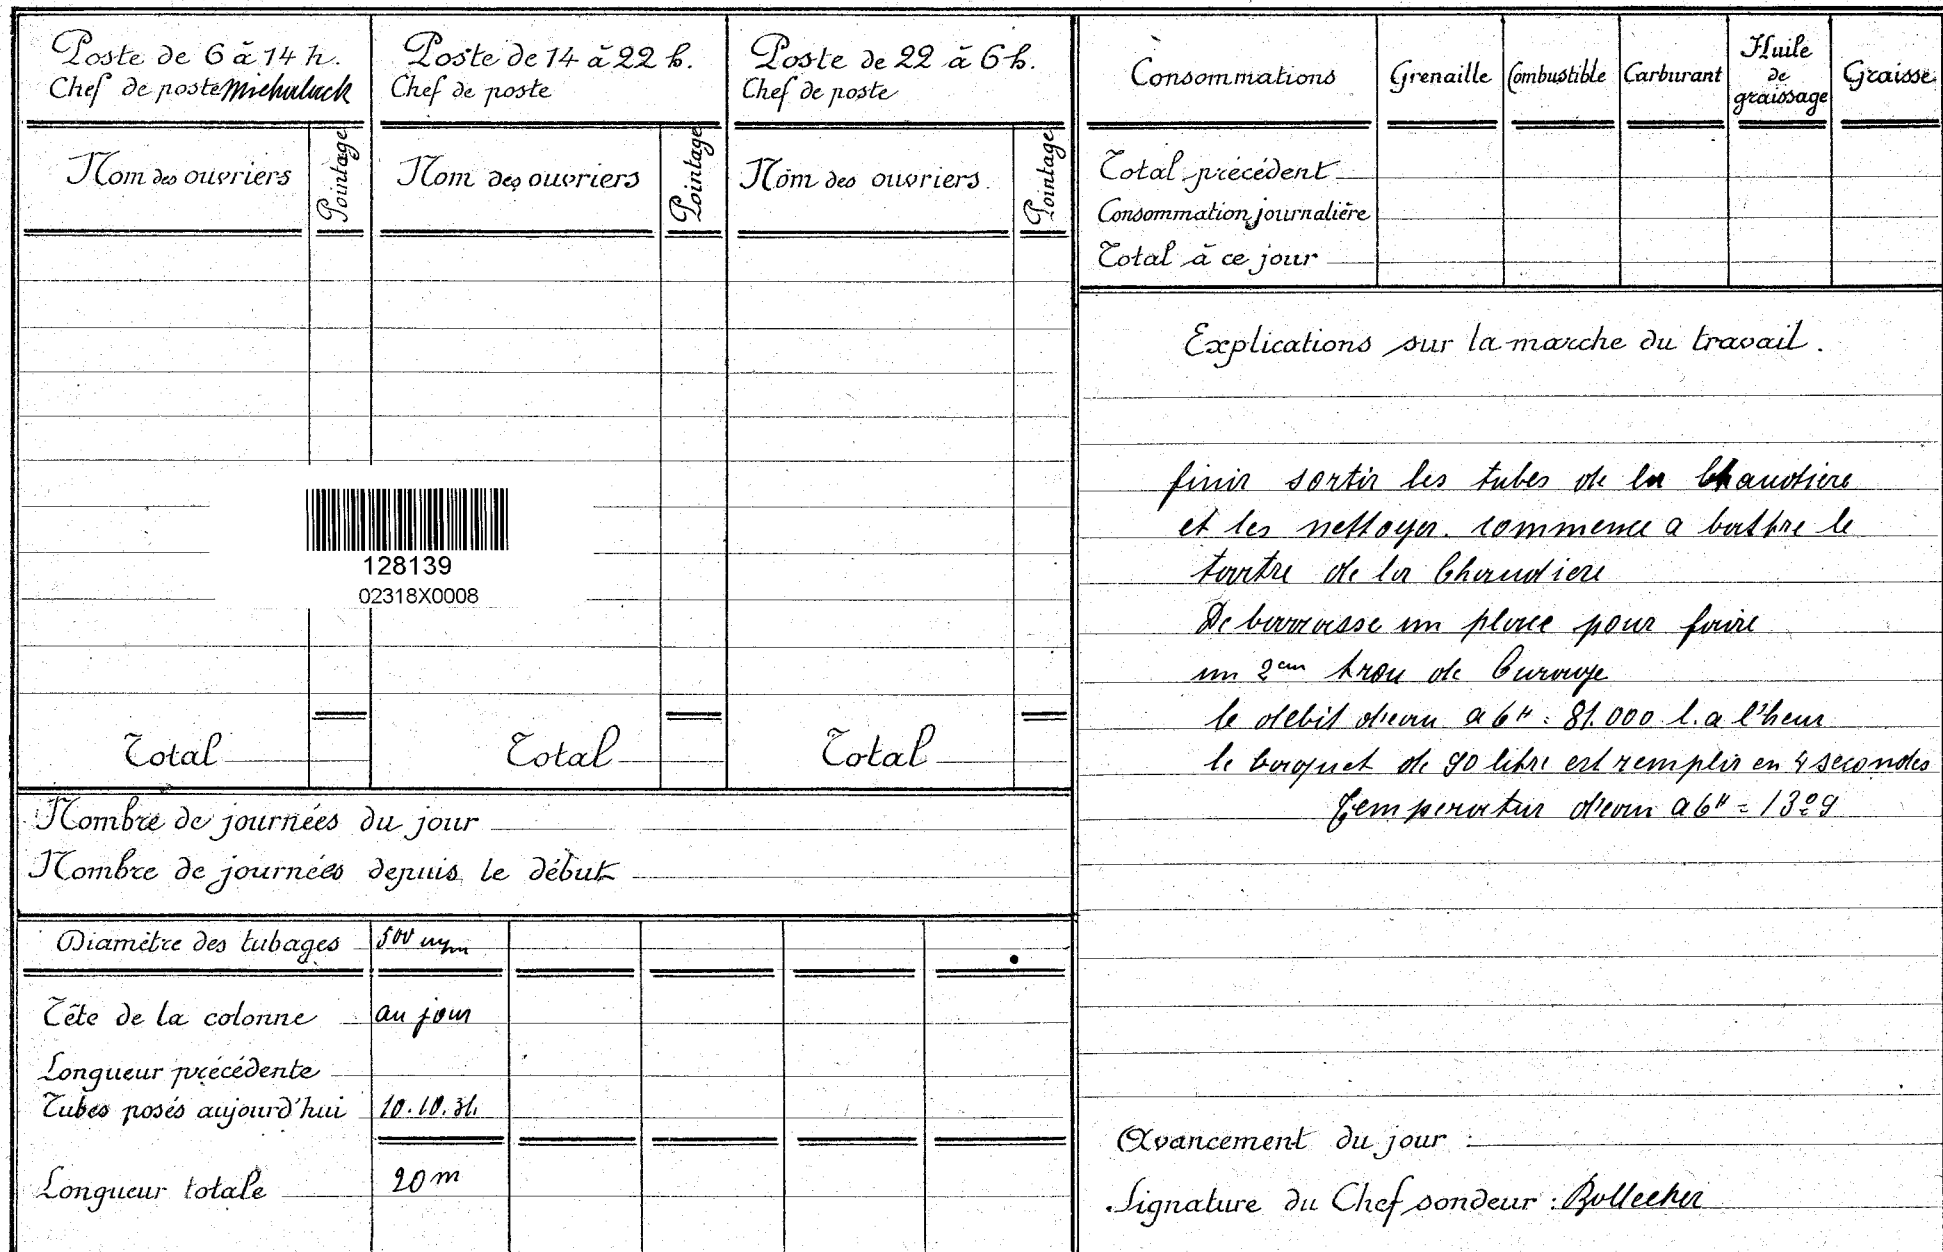 Poste de 6 à 14 h.
Chef de poste Michalack
Poste de 14 à 22 h.
Chef de poste
Poste de 22 à 6 h.
Chef de poste
Nom des ouvriers
Pointage
Nom des ouvriers
Pointage
Nom des ouvriers
Pointage
128139
02318X0008
Total
Total
Total
Nombre de journées du jour
Nombre de journées depuis le début
Diamètre des tubages 500 m/m
Tête de la colonne au jour
Longueur précédente
Tubes posés aujourd'hui 10.10.31.
Longueur totale 20 m
Consommations
Grenaille
Combustible
Carburant
Huile
de
graissage
Graisse
Total précédent
Consommation journalière
Total à ce jour
Explications sur la marche du travail.
finir sortir les tubes de la Chaudiere
et les nettoyer. commence a battre le
tartre de la Chaudiere
De barrasse un place pour faire
un 2em trou de Curage
le debit d'eau a 6H = 81.000 l. a l'heur
le baquet de 90 litre est remplir en 4 secondes
Temperatur d'eau a 6H = 13º9
Avancement du jour :
Signature du Chef sondeur : Bollecher